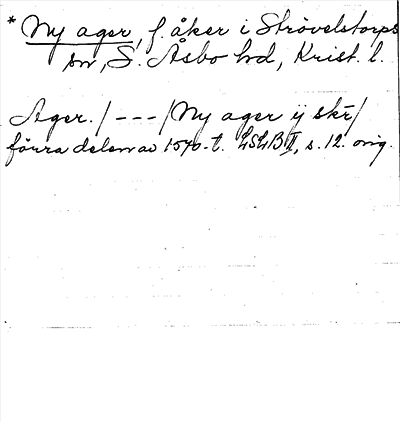 * Ny ager, f. åker i Strövelstorps
sn, S. Åsbo hd, Krist. l.
Ager. / - - - / Ny ager ij skr /
förra delen av 1570-t. LSLB II, s. 12. orig.